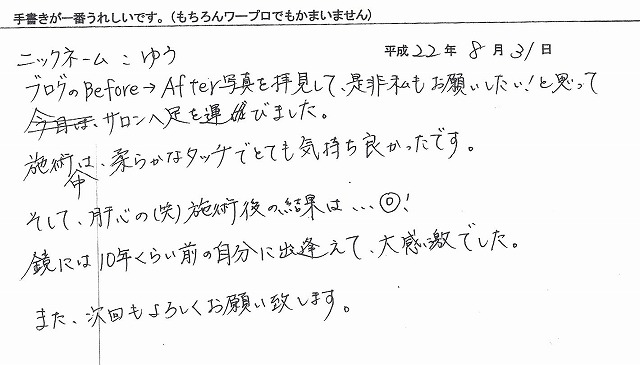 手書きが一番うれしいです。(もちろんワープロでもかまいません)
ニックネーム:ゆう
平成22年8月31日
ブログのBefore→After写真を拝見して、是非私もお願いしたい!と思って
今日は、サロンへ足を運びました。
施術中は、柔らかなタッチでとても気持ち良かったです。
そして、肝心の(笑)施術後の結果は…◎!
鏡には10年くらい前の自分に出逢えて、大感激でした。
また、次回もよろしくお願い致します。